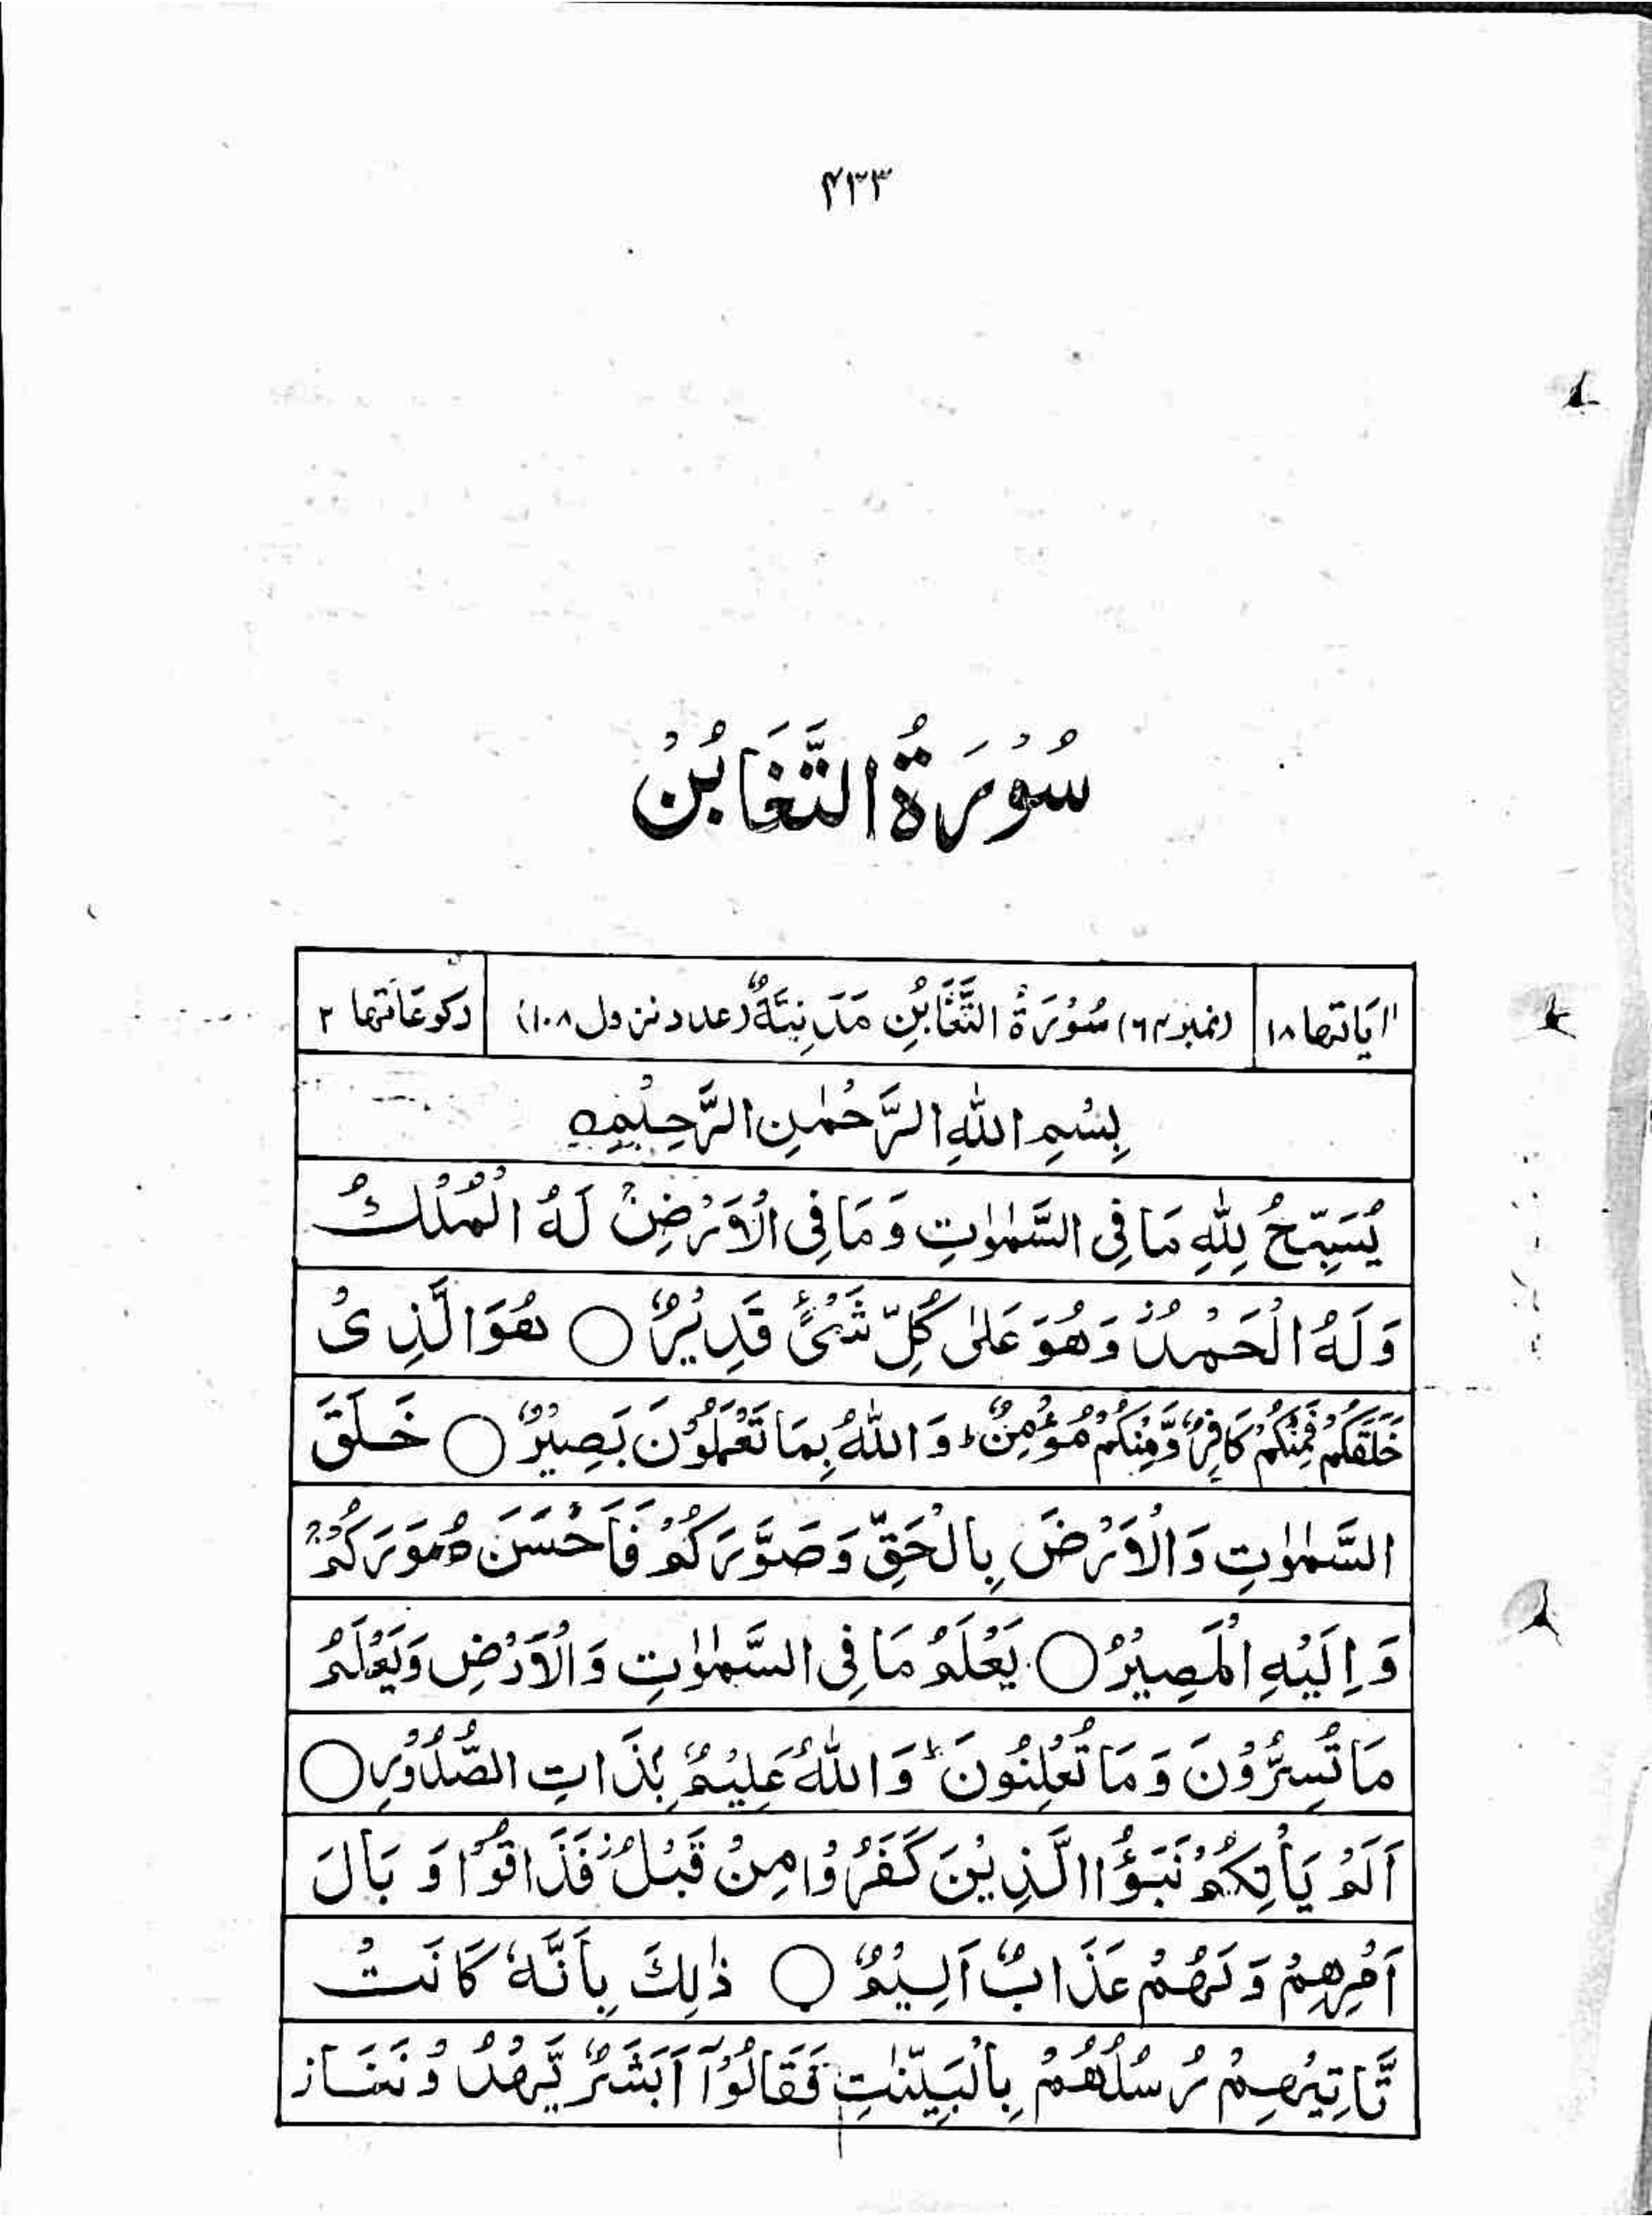 ۴۳۳
سُوْرَةُ التَّغَابُنْ
اٰیَاتہا ۱۸ (نمبر ۶۴) سُوْرَةُ التَّغَابُنِ مَدَنِیَّةٌ (عدد نزول ۱۰۸) رکوعَاتہا ۲
بِسْمِ اللّٰهِ الرَّحْمٰنِ الرَّحِیْمِ
یُسَبِّحُ لِلّٰهِ مَا فِی السَّمٰوٰتِ وَ مَا فِی الْاَرْضِۚ لَهُ الْمُلْكُ
وَ لَهُ الْحَمْدُؗ وَ هُوَ عَلٰی كُلِّ شَیْءٍ قَدِیْرٌ ○ هُوَ الَّذِیْ
خَلَقَكُمْ فَمِنْكُمْ كَافِرٌ وَّ مِنْكُمْ مُؤْمِنٌؕ وَ اللّٰهُ بِمَا تَعْمَلُوْنَ بَصِیْرٌ ○ خَلَقَ
السَّمٰوٰتِ وَ الْاَرْضَ بِالْحَقِّ وَ صَوَّرَكُمْ فَاَحْسَنَ صُوَرَكُمْۚ
وَ اِلَیْهِ الْمَصِیْرُ ○ یَعْلَمُ مَا فِی السَّمٰوٰتِ وَ الْاَرْضِ وَ یَعْلَمُ
مَا تُسِرُّوْنَ وَ مَا تُعْلِنُوْنَؕ وَ اللّٰهُ عَلِیْمٌۢ بِذَاتِ الصُّدُوْرِ ○
اَلَمْ یَاْتِكُمْ نَبَؤُا الَّذِیْنَ كَفَرُوْا مِنْ قَبْلُؗ فَذَاقُوْا وَ بَالَ
اَمْرِهِمْ وَ لَهُمْ عَذَابٌ اَلِیْمٌ ○ ذٰلِكَ بِاَنَّهٗ كَانَتْ
تَّاْتِیْهِمْ رُسُلُهُمْ بِالْبَیِّنٰتِ فَقَالُوْۤا اَبَشَرٌ یَّهْدُ وْنَنَا ز